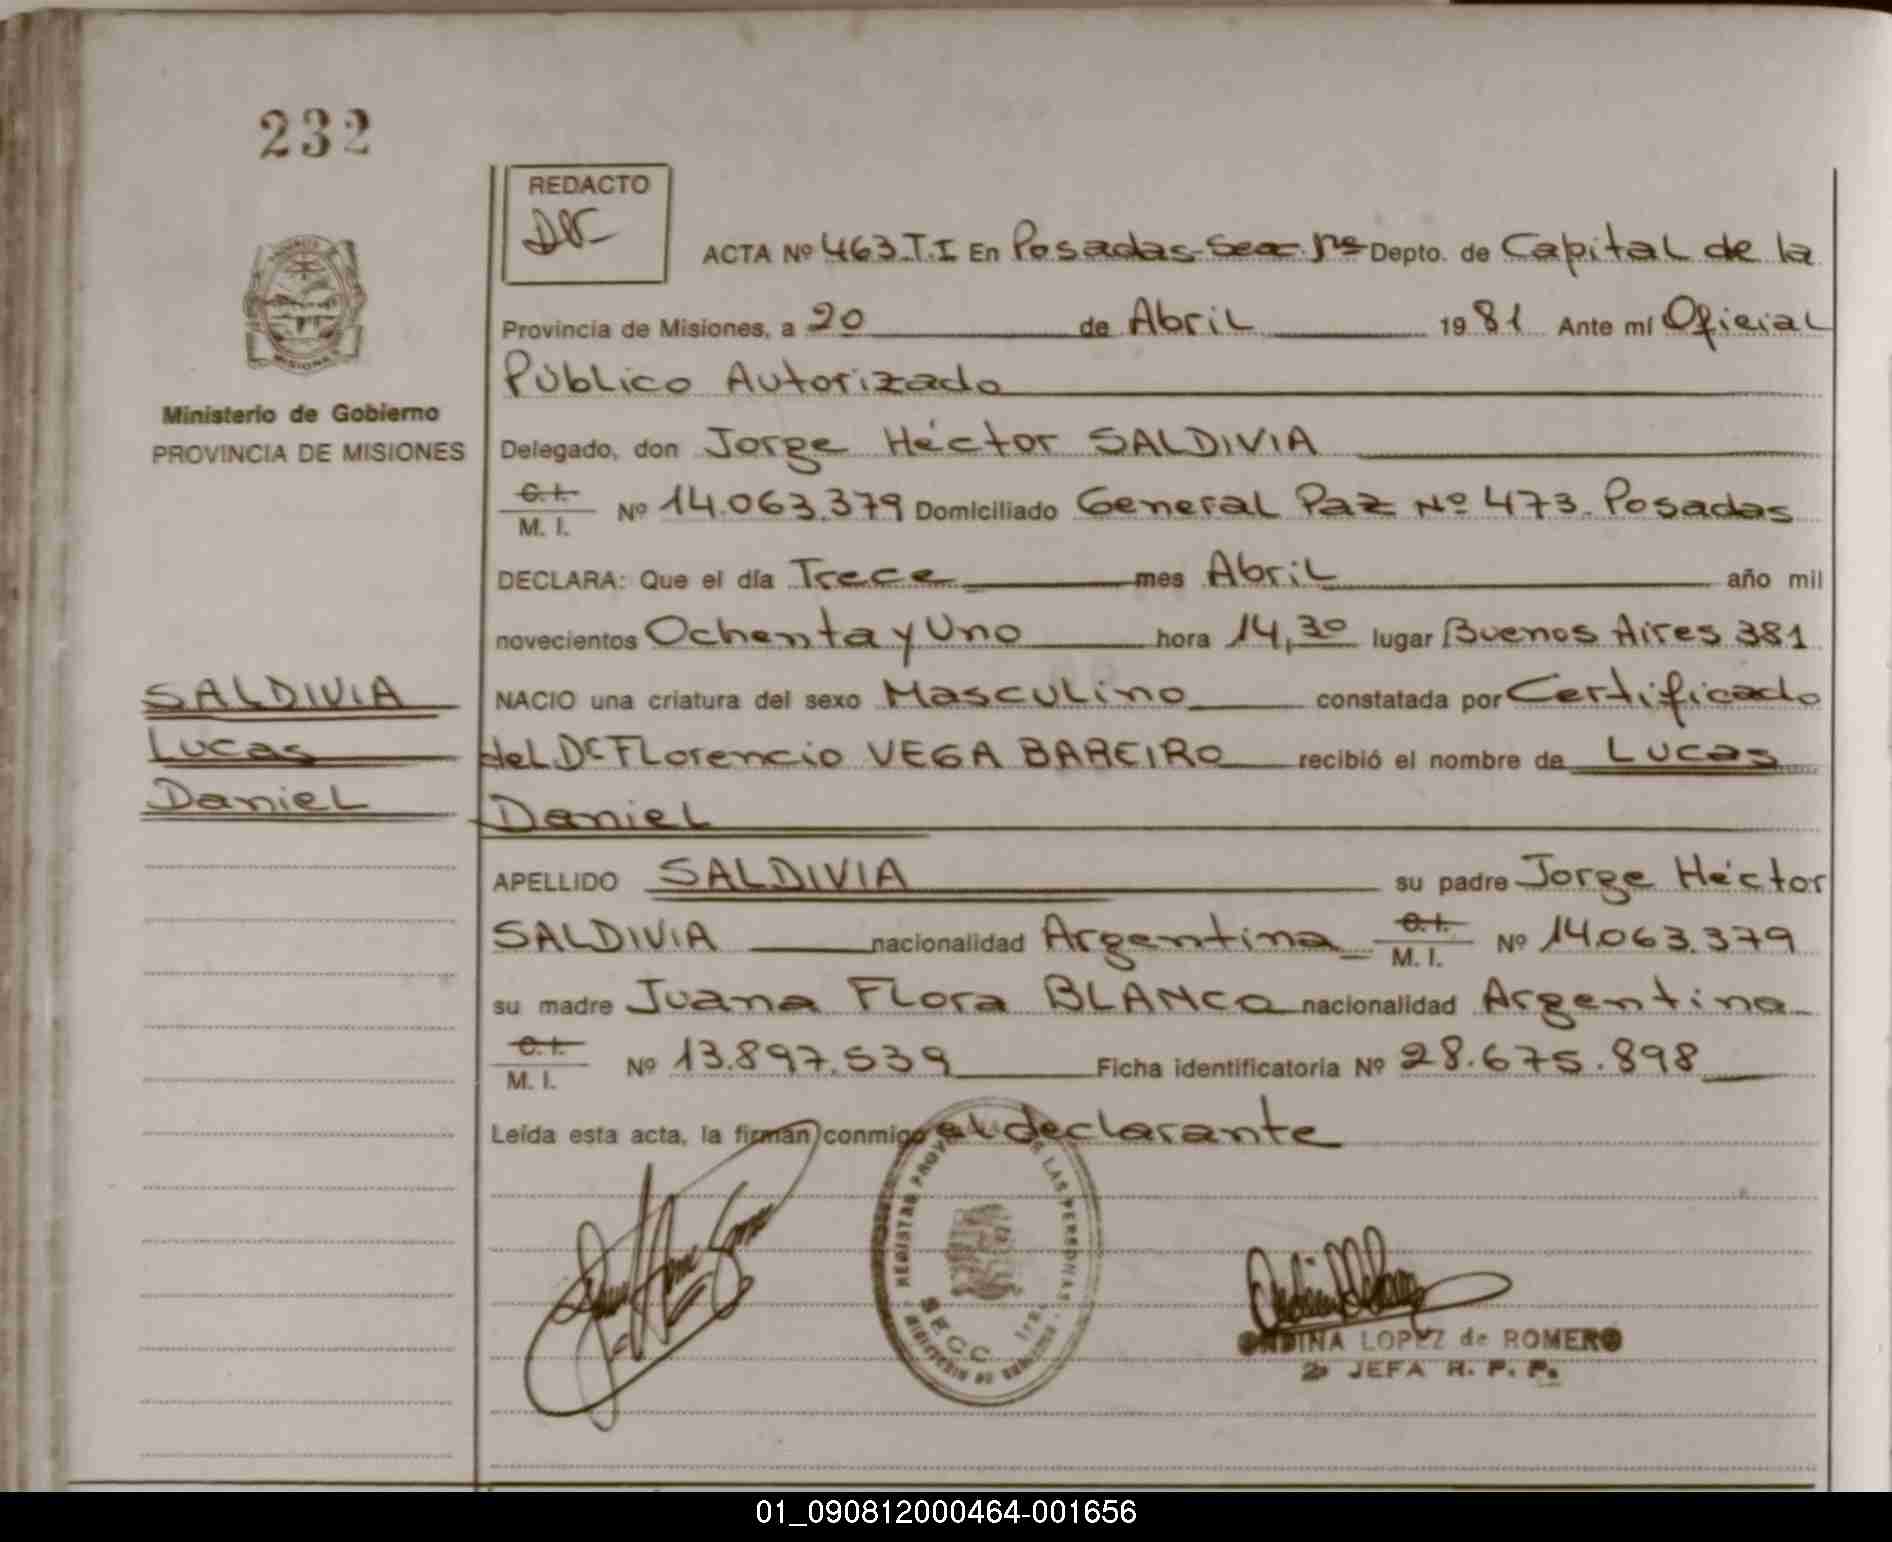 232
REDACTO
ACTA Nº 463.T.I En Posadas-Sec. 1ra Depto. de Capital de la
Provincia de Misiones, a 20 de Abril 1981 Ante mí Oficial
Público Autorizado
MISIONES
Ministerio de Gobierno
PROVINCIA DE MISIONES
Delegado, don Jorge Héctor SALDIVIA
C.I. M. I. Nº 14.063.379 Domiciliado General Paz Nº 473. Posadas
DECLARA: Que el día Trece mes Abril año mil
novecientos Ochenta y Uno hora 14,30 lugar Buenos Aires 381
SALDIVIA
Lucas
Daniel
NACIO una criatura del sexo Masculino constatada por Certificado
del Dr Florencio VEGA BAREIRO recibió el nombre de Lucas
Daniel
APELLIDO SALDIVIA su padre Jorge Héctor
SALDIVIA nacionalidad Argentina C.I. M. I. Nº 14.063.379
su madre Juana Flora BLANCO nacionalidad Argentina
C.I. M. I. Nº 13.897.539 Ficha identificatoria Nº 28.675.898
Leída esta acta, la firman conmigo el declarante
REGISTRO LAS PERSONAS
SECC 1ra.
ONDINA LOPEZ de ROMERO
2º JEFA R. P. P.
01_090812000464-001656